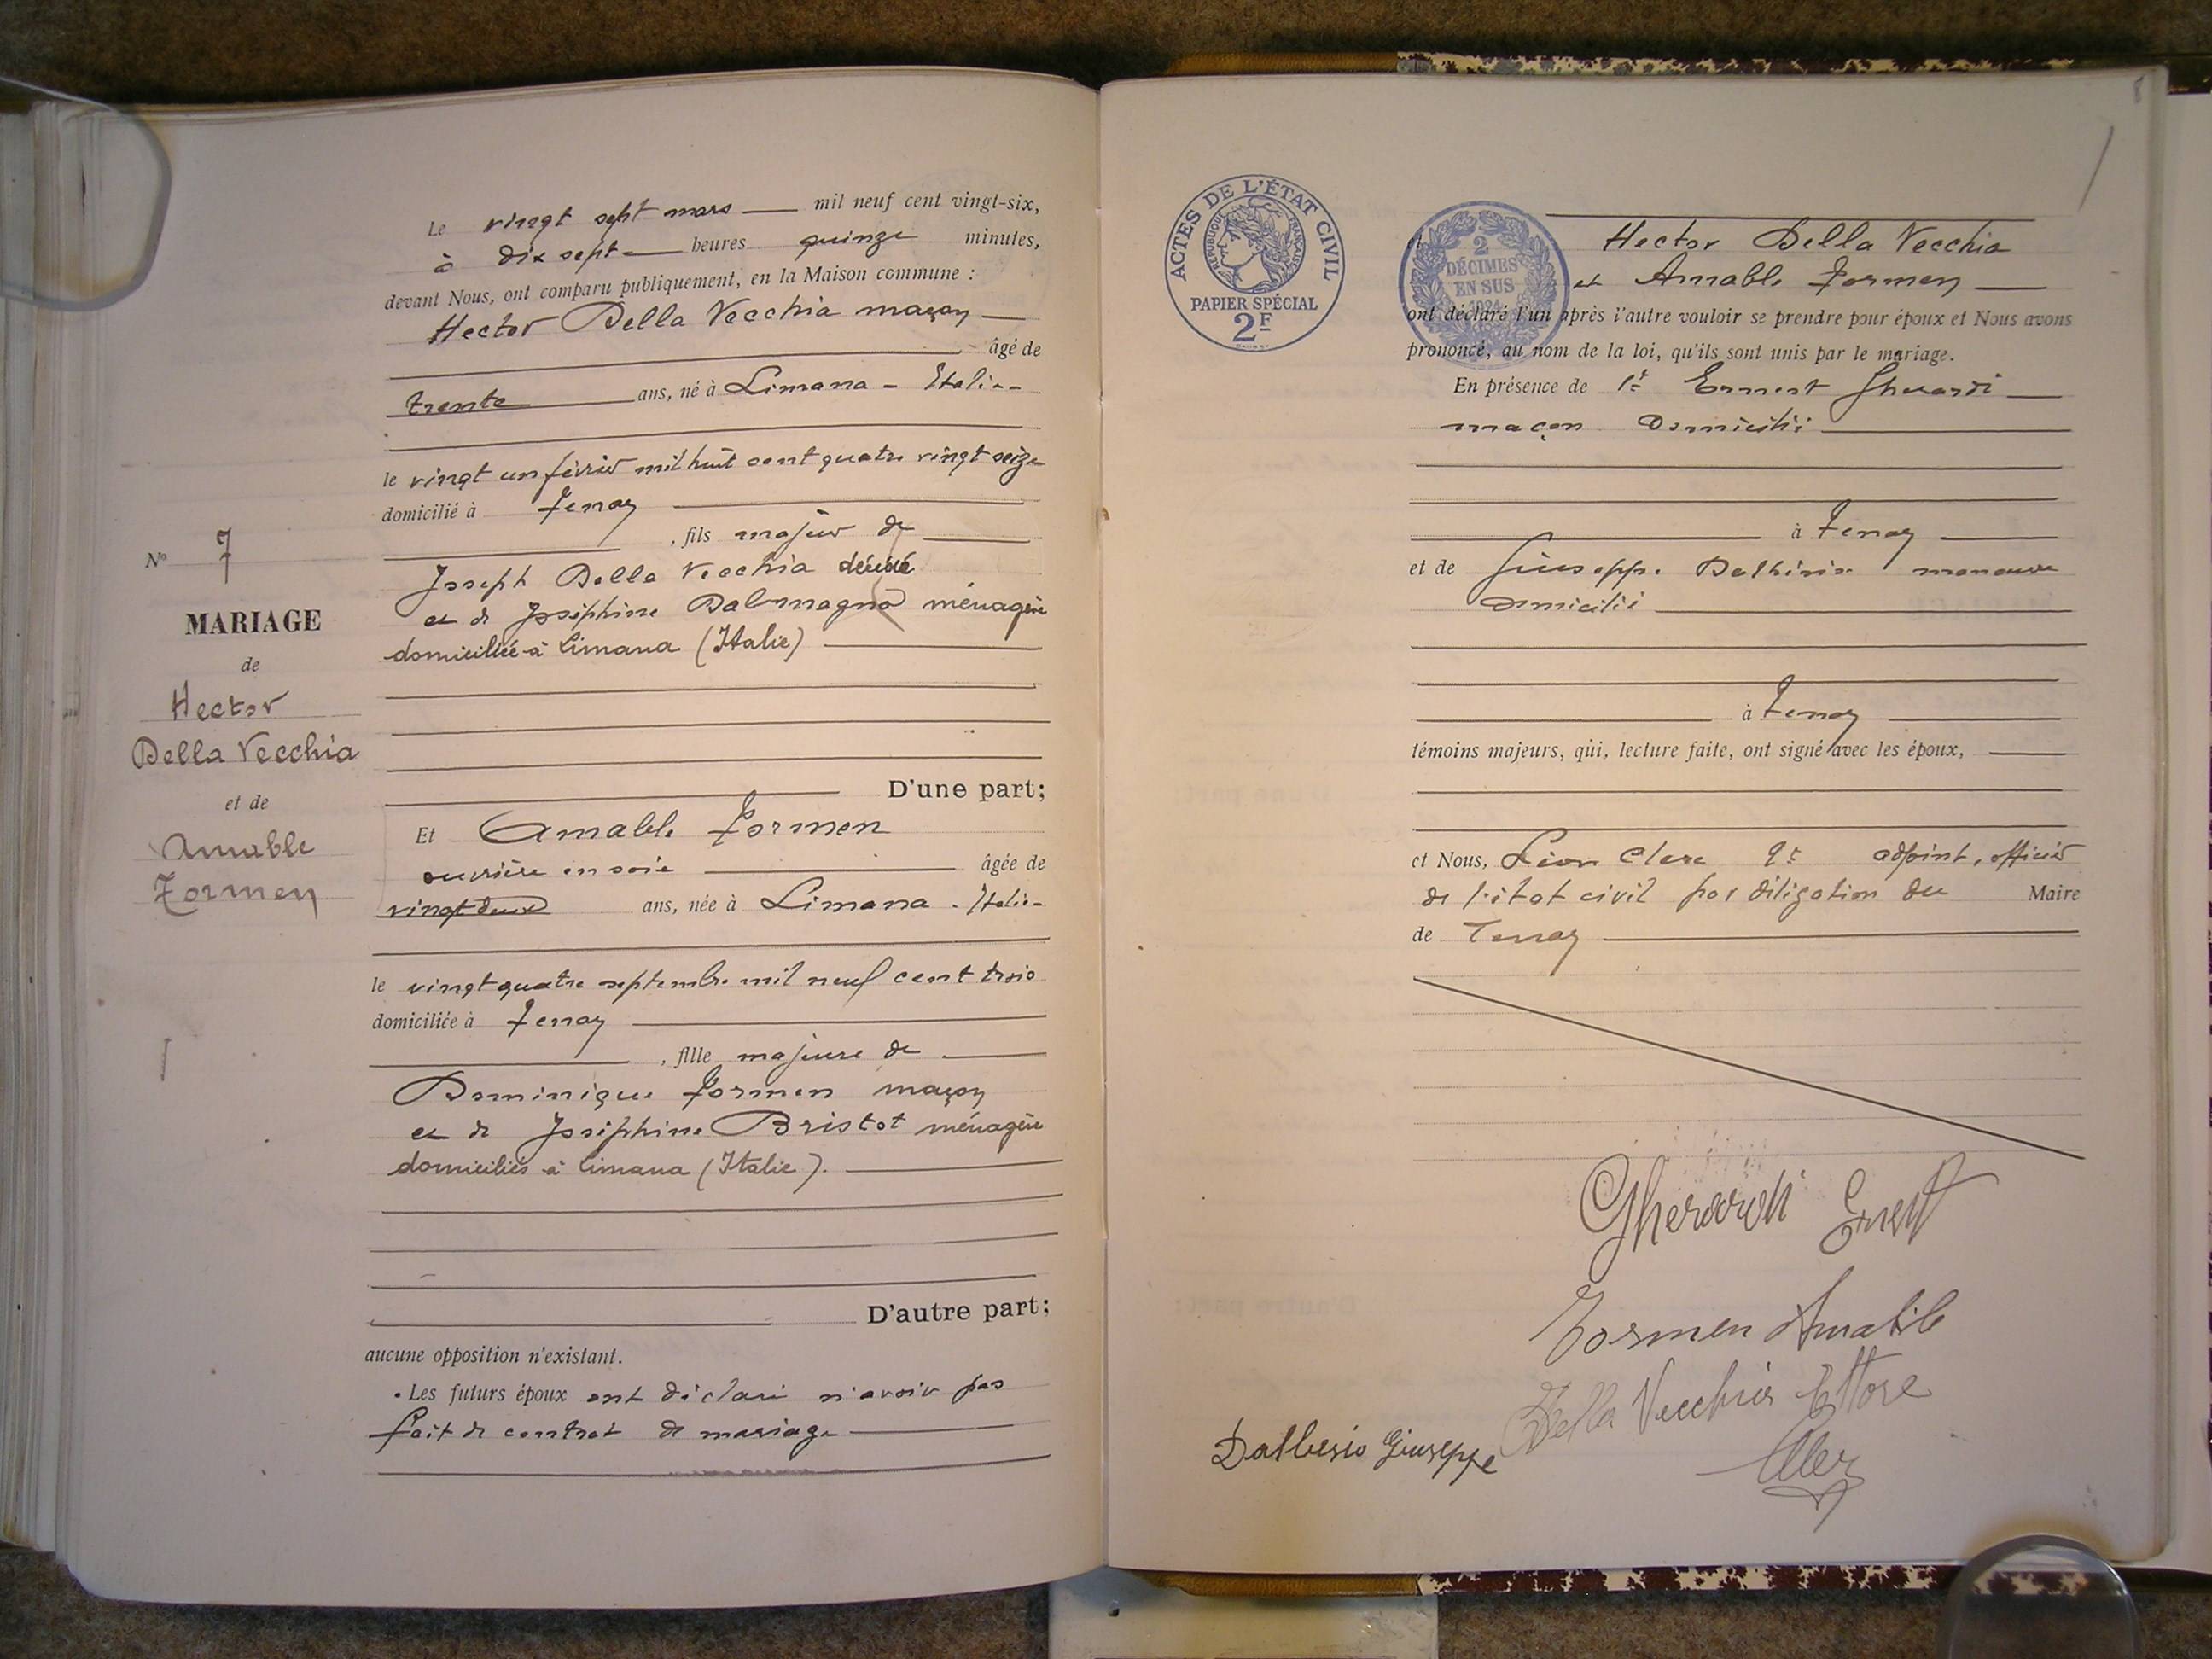 Le vingt sept mars mil neuf cent vingt-six,
à dix sept heures quinze minutes,
devant Nous, ont comparu publiquement, en la Maison commune :
Hector Della Vecchia maçon
âgé de
trente ans, né à Limana - Italie -
le vingt un février mil huit cent quatre vingt seize
domicilié à Tenay
, fils majeur de
Joseph Della Vecchia décédé
et de Joséphine Dalmagno ménagère
domiciliée à Limana (Italie)
D'une part;
N° 7
MARIAGE
de
Hector
Della Vecchia
et de
Amable
Tormen
Et Amable Tormen
ouvrière en soie âgée de
vingt deux ans, née à Limana - Italie -
le vingt quatre septembre mil neuf cent trois
domiciliée à Tenay
, fille majeure de
Dominique Tormen maçon
et de Joséphine Bristot ménagère
domiciliés à Limana (Italie).
D'autre part;
aucune opposition n'existant.
Les futurs époux ont déclaré n'avoir pas
fait de contrat de mariage
ACTES DE L'ÉTAT CIVIL
RÉPUBLIQUE FRANÇAISE
PAPIER SPÉCIAL
2F
2
DÉCIMES
EN SUS
1924
Hector Della Vecchia
et Amable Tormen
ont déclaré l'un après l'autre vouloir se prendre pour époux et Nous avons
prononcé, au nom de la loi, qu'ils sont unis par le mariage.
En présence de 1° Ernest Gherardi
maçon domicilié
à Tenay
et de Giuseppe manœuvre
domicilié
à Tenay
témoins majeurs, qui, lecture faite, ont signé avec les époux,
et Nous, Léon Clerc adjoint, officier
de l'état civil par délégation du Maire
de Tenay
Gherardi Ernest
Tormen Amabile
Della Vecchia Ettore
Dalbesio Giuseppe